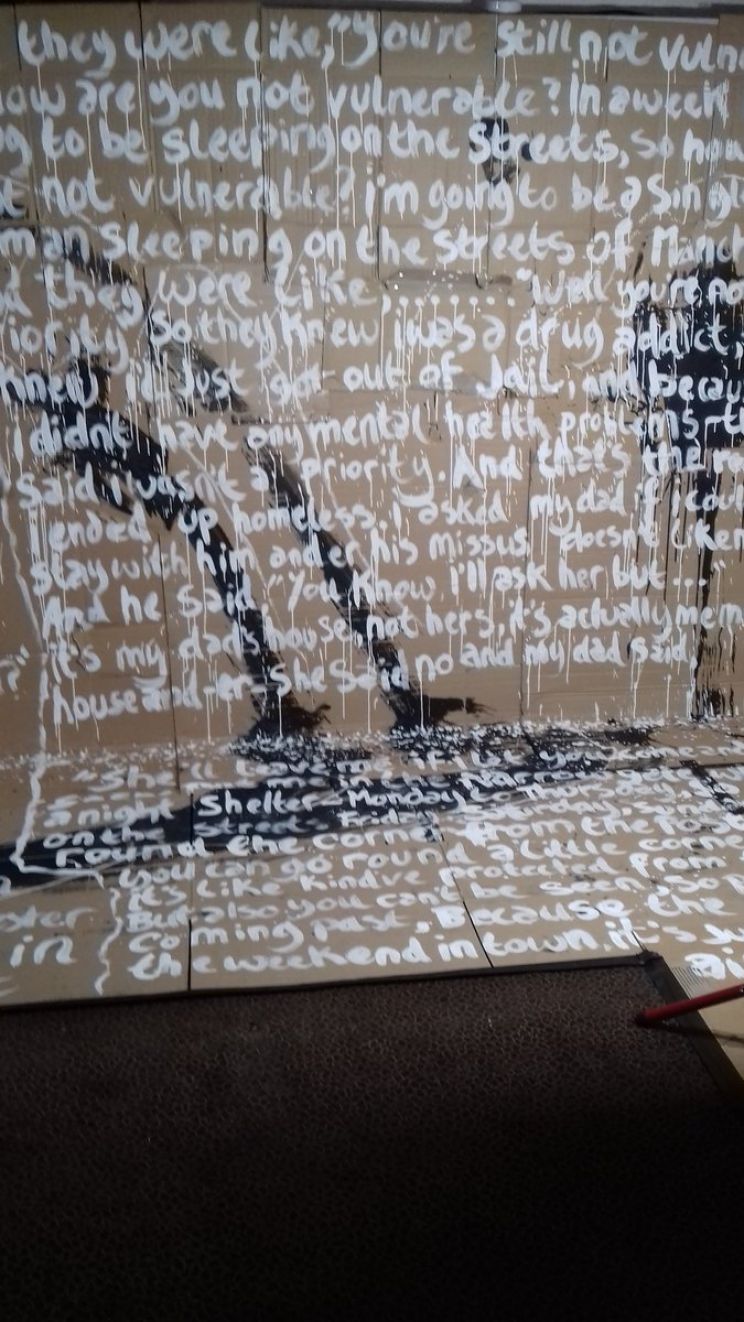 they were like, "You're still not vulne
how are you not vulnerable? In a week
g to be sleeping on the streets, so how
not vulnerable? i'm going to be a singl
man sleeping on the streets of Manch
they were like, ....... "Well you're no
iority, so they knew i was a drug addict,
knew i'd just got out of Jail, and becau
i didn't have any mental health problems - th
said i wasn't a priority. And that's the re
ended up homeless. I asked my dad if i coul
stay with him and er his missus doesn't like m
And he said "You know, i'll ask her but..."
it's my dad's house, not hers, it's actually me m
house and - er - she said no and my dad said,
"She'll leave me if i let you
a night Shelter - Monday to Thursday,
on the Street Friday, Saturday, Sun
round the corner from the
you can go round a little corne
it's like kind've protected from
But also you can't be seen, so p
coming past, Because the
in the weekend in town, it's